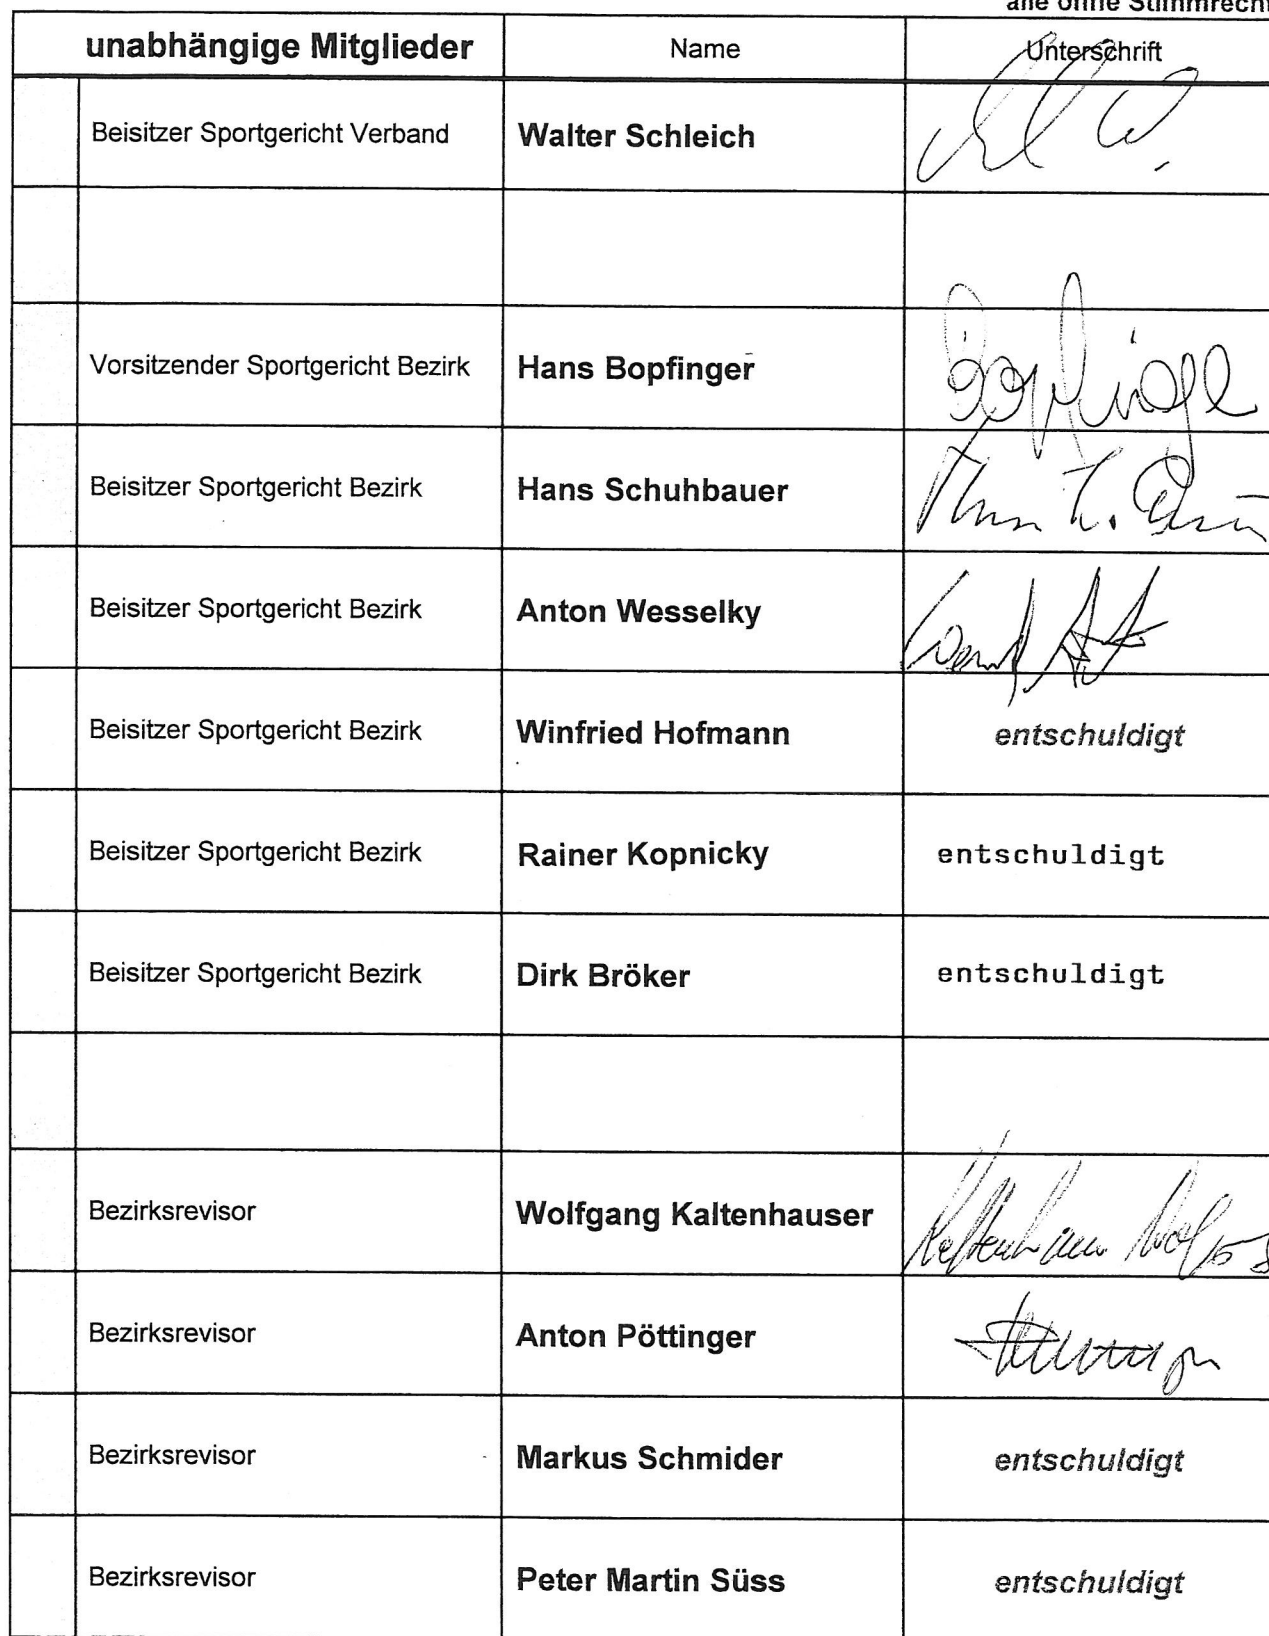 alle ohne Stimmrecht
unabhängige Mitglieder Name Unterschrift
Beisitzer Sportgericht Verband Walter Schleich
Vorsitzender Sportgericht Bezirk Hans Bopfinger
Beisitzer Sportgericht Bezirk Hans Schuhbauer
Beisitzer Sportgericht Bezirk Anton Wesselky
Beisitzer Sportgericht Bezirk Winfried Hofmann entschuldigt
Beisitzer Sportgericht Bezirk Rainer Kopnicky entschuldigt
Beisitzer Sportgericht Bezirk Dirk Bröker entschuldigt
Bezirksrevisor Wolfgang Kaltenhauser
Bezirksrevisor Anton Pöttinger
Bezirksrevisor Markus Schmider entschuldigt
Bezirksrevisor Peter Martin Süss entschuldigt